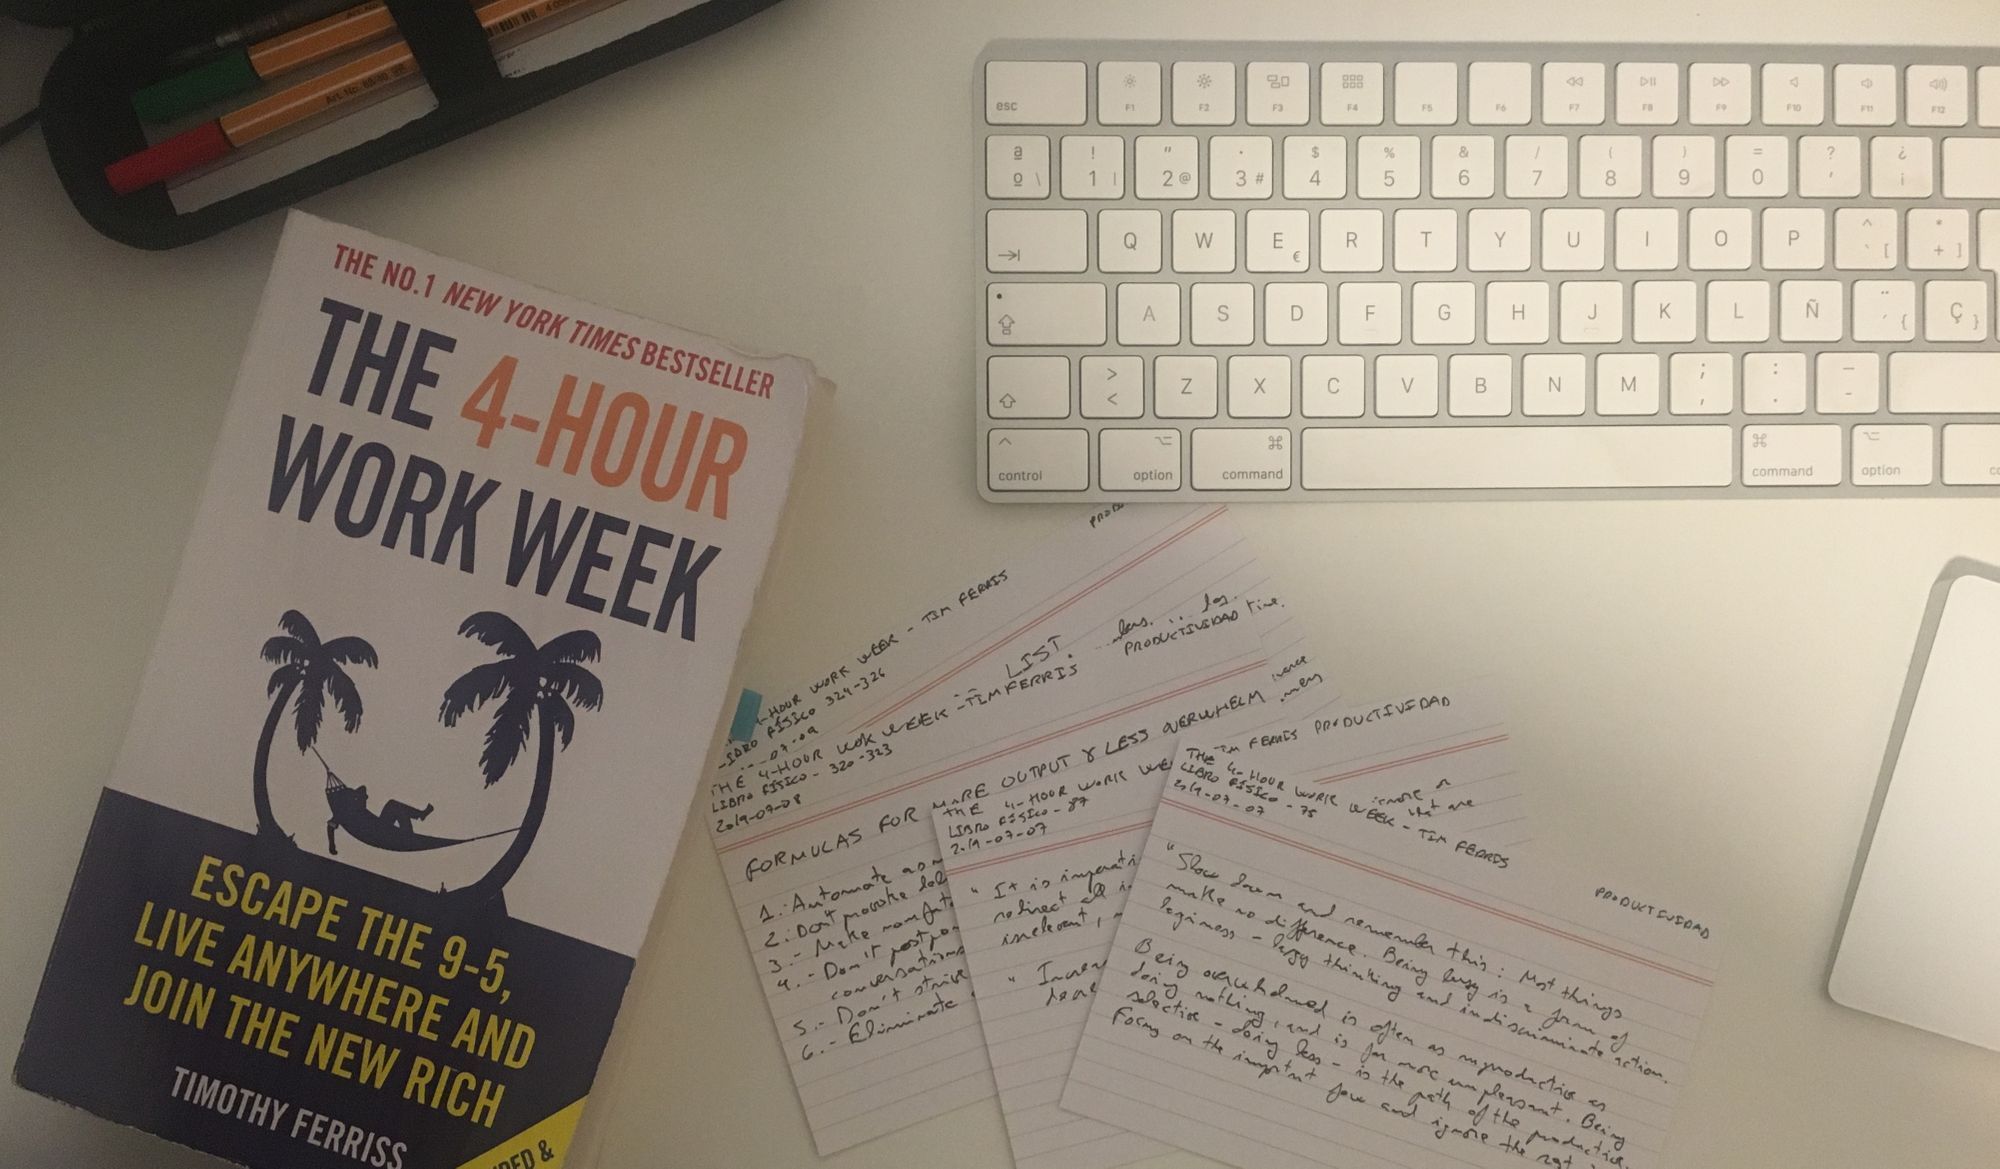 THE NO.1 NEW YORK TIMES BESTSELLER
THE 4-HOUR
WORK WEEK
ESCAPE THE 9-5,
LIVE ANYWHERE AND
JOIN THE NEW RICH
TIMOTHY FERRISS
&
esc
F1 F2 F3 F4 F5 F6 F7 F8 F9 F10 F11 F12
ª ! " · $ % & / ( ) = ? ¿
º \ 1 | 2 @ 3 # 4 5 6 7 8 9 0 ' ¡
Q W E € R T Y U I O P ^ ` [ * + ]
A S D F G H J K L Ñ ¨ ´ { Ç }
> < Z X C V B N M ; , : . _ -
control option command command option
4-HOUR WORK WEEK - TIM FERRIS
LIBRO FÍSICO 324-326
LIST
PRODUCTIVIDAD time.
THE 4-HOUR WORK WEEK - TIM FERRIS
LIBRO FÍSICO - 320-323
2019-07-08
FORMULAS FOR MORE OUTPUT & LESS OVERWHELM
1.- Automate as
2.- Don't
3.- Make
4.- Don't postpone
conversations
5.- Don't strive
6.- Eliminate
THE 4-HOUR WORK
LIBRO FÍSICO - 87
2019-07-07
" It is
redirect all
irrelevant,
"
TIM FERRIS PRODUCTIVIDAD
THE 4-HOUR WORK WEEK - TIM FERRIS
LIBRO FÍSICO - 75
2019-07-07
PRODUCTIVIDAD
" Slow down and remember this: Most things
make no difference. Being busy is a form of
laziness - lazy thinking and indiscriminate action.
Being overwhelmed is often as unproductive as
doing nothing, and is far more unpleasant. Being
selective - doing less - is the path of the productive.
Focus on the important few and ignore the rest